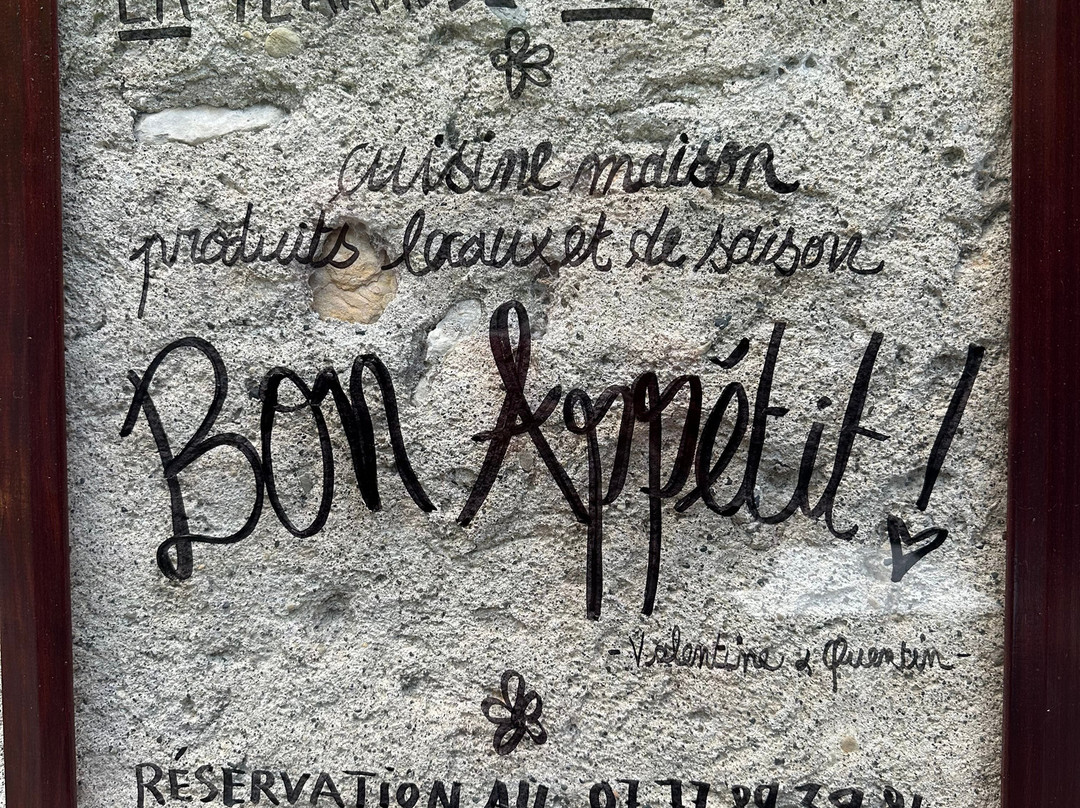 cuisine maison
produits locaux et de saison
Bon Appétit !
- Valentine & Quentin -
RÉSERVATION AU 07 77